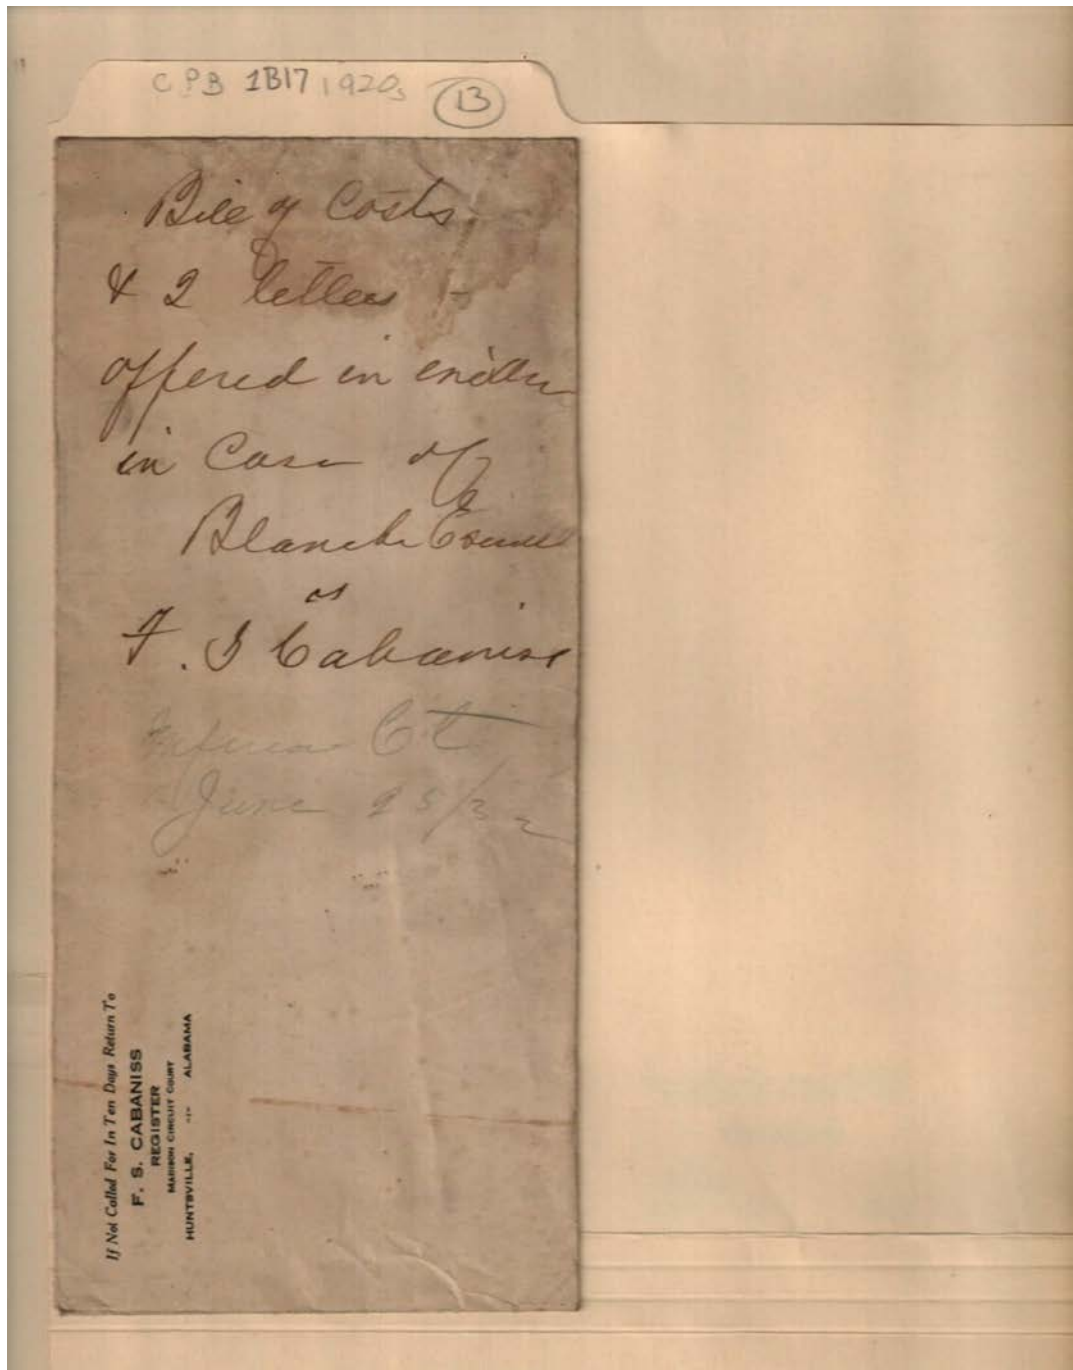 CPB 1B17 1920s 13
Bill of Costs
& 2 letters
offered in
in Case of
Blanche
vs
F. S Cabaniss
Ct
June 25/32
If Not Called For In Ten Days Return To
F. S. CABANISS
REGISTER
MADISON CIRCUIT COURT
HUNTSVILLE, -:- ALABAMA